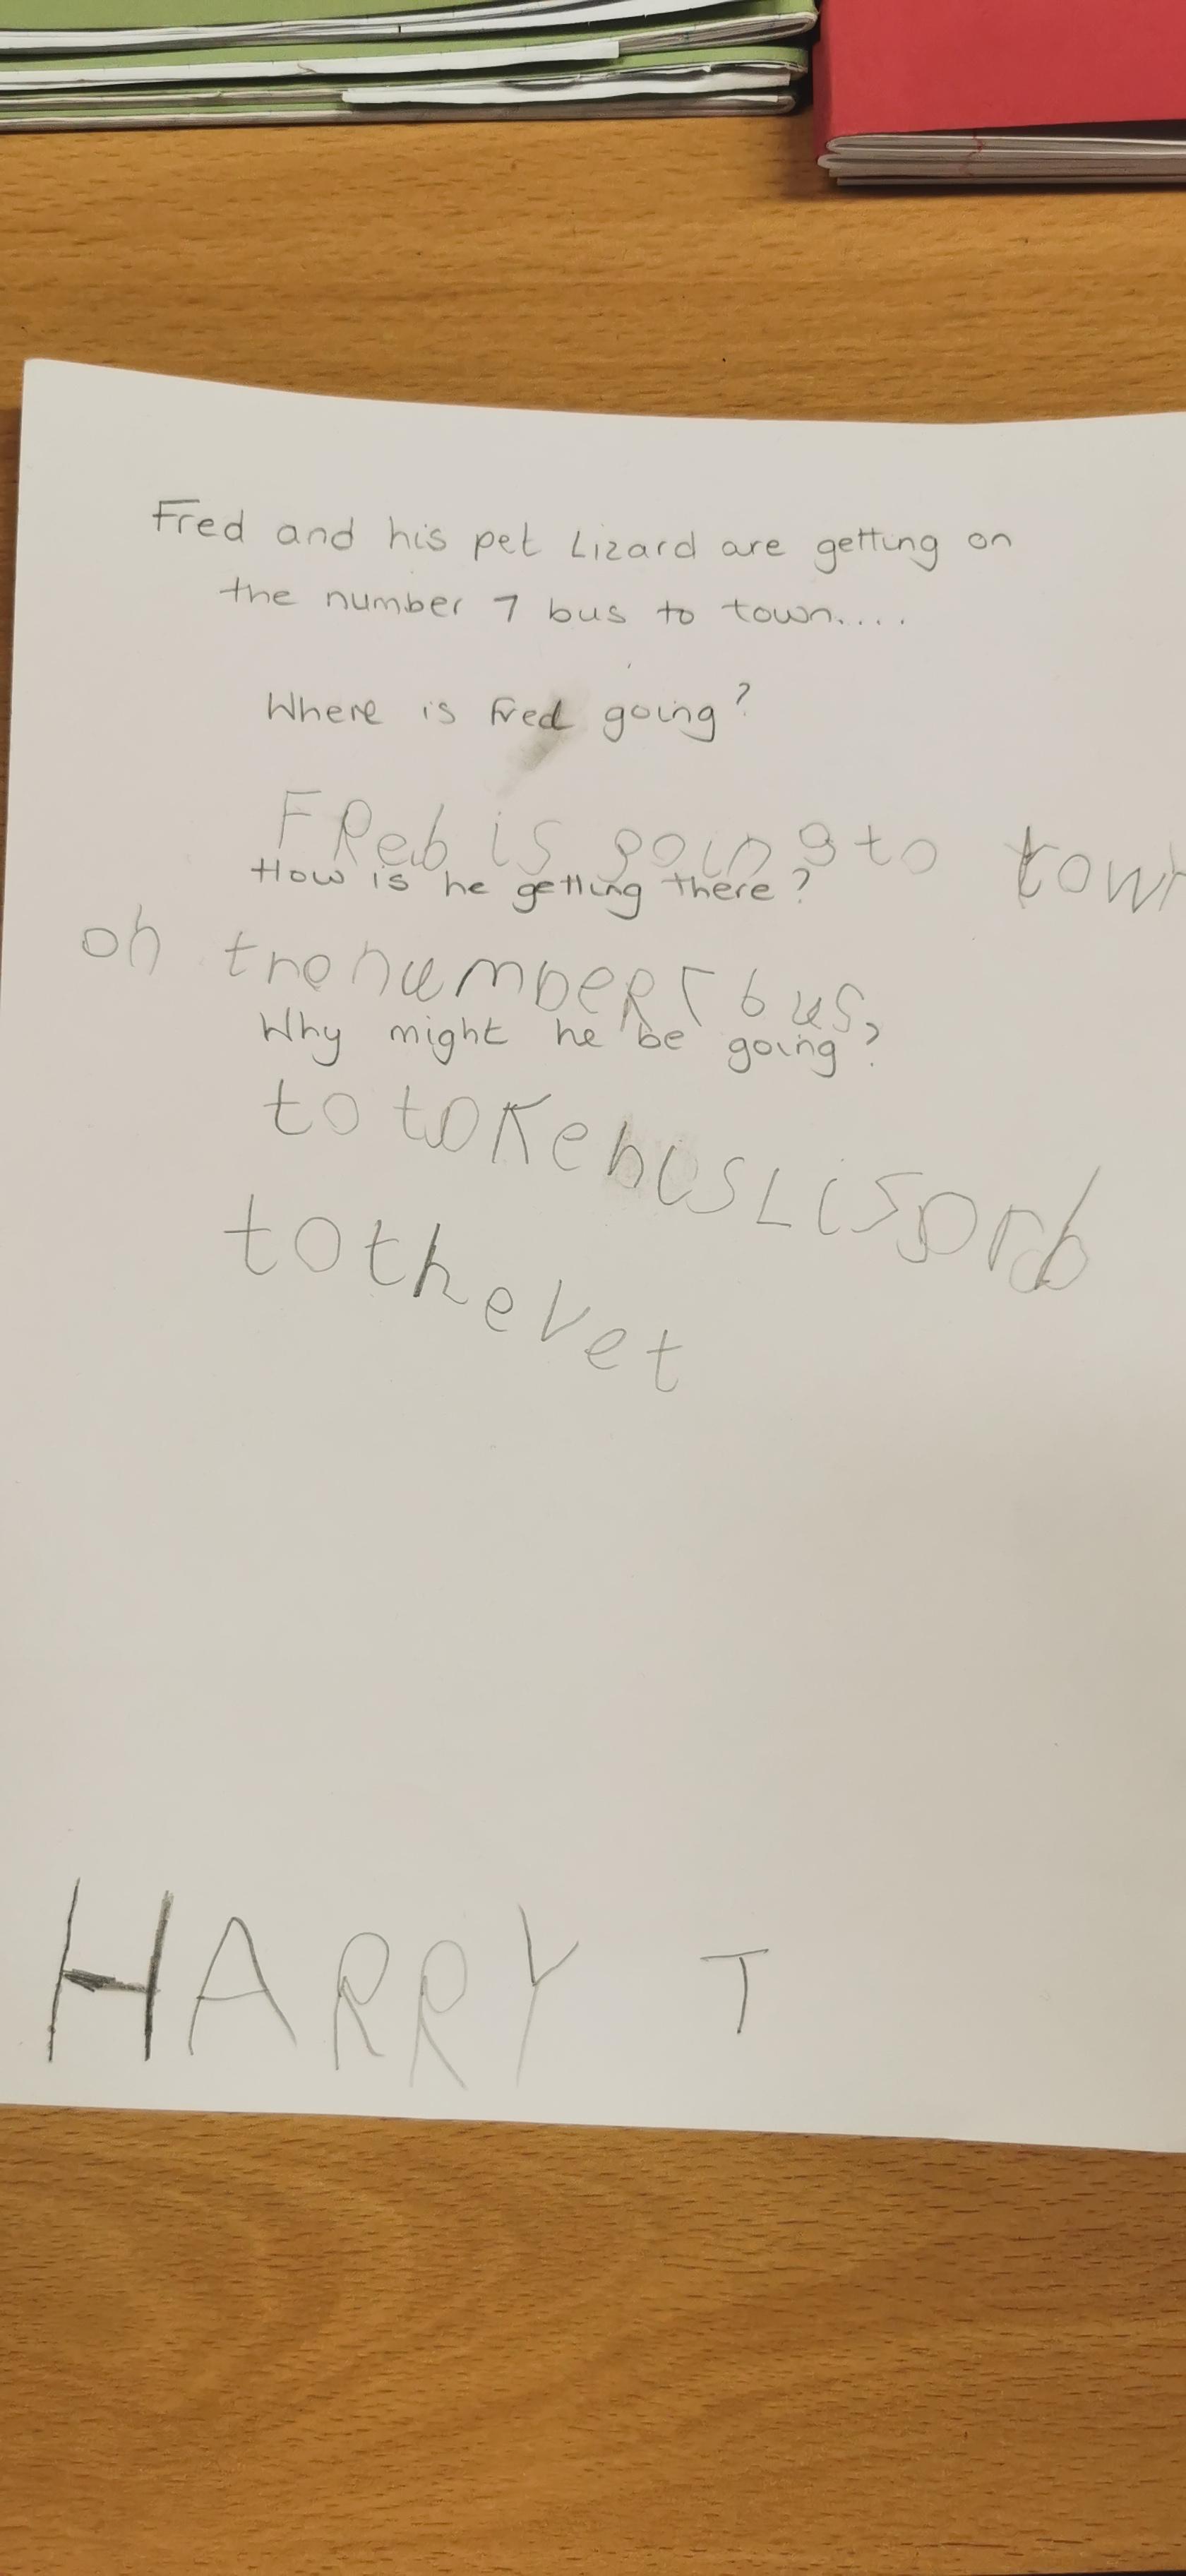 Fred and his pet Lizard are getting on
the number 7 bus to town....
Where is Fred going?
FReb is going to town
How is he getting there?
on the number 7 bus
Why might he be going?
to toke his Lisorb
to the vet
HARRY T